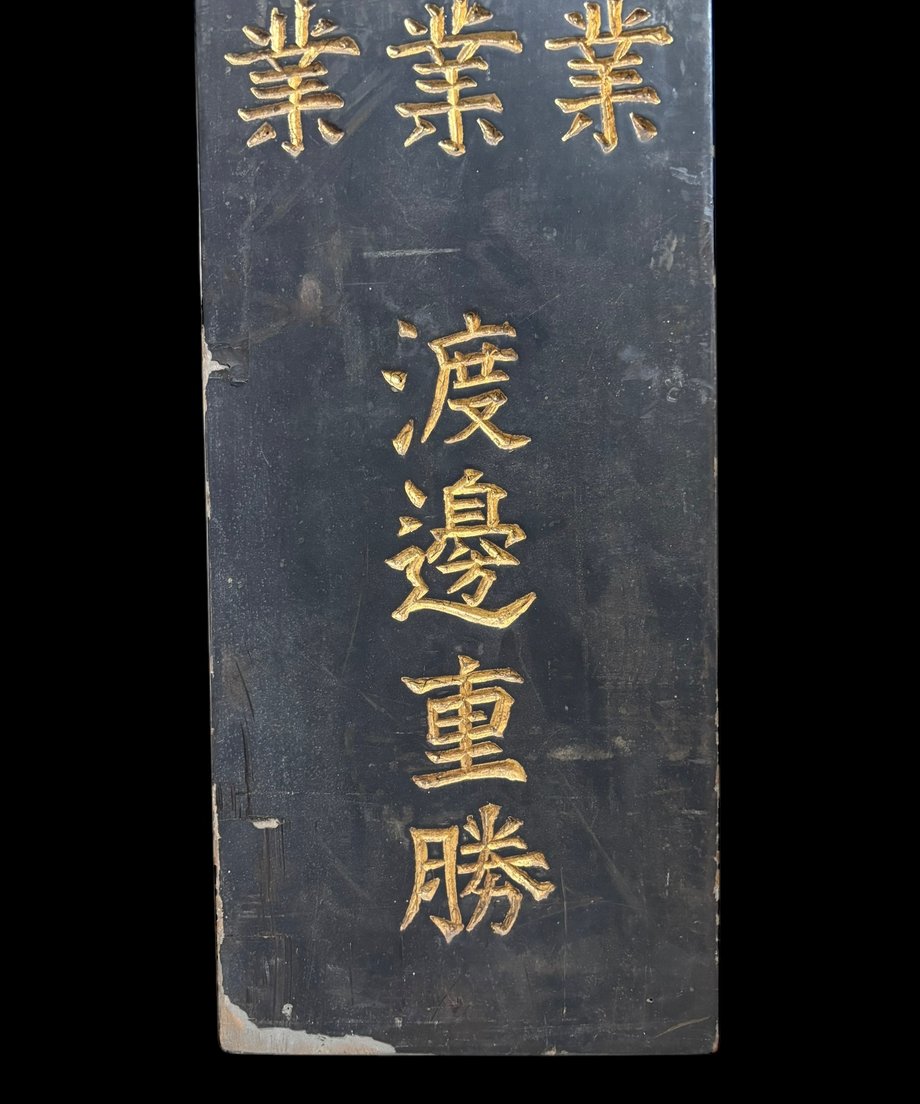 業
業
業
渡邊重勝